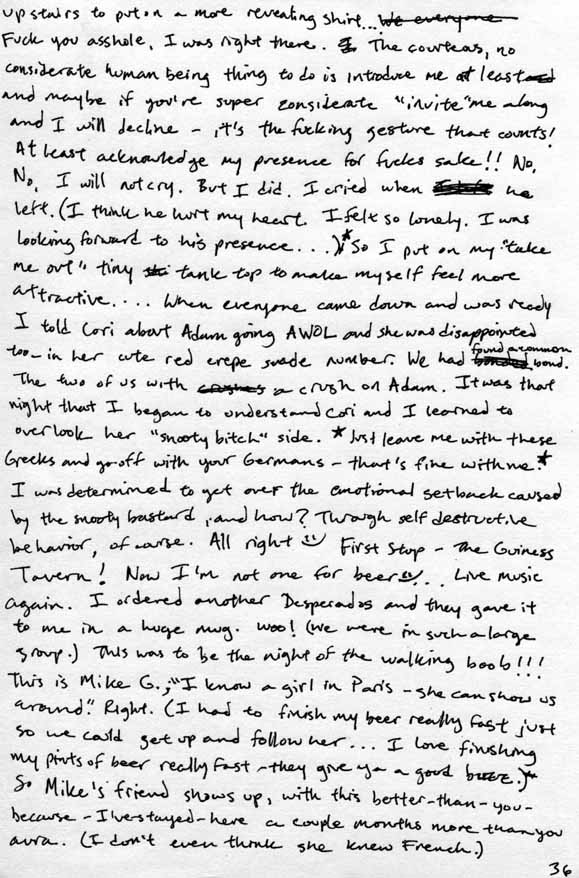 upstairs to put on a more revealing shirt... We everyone
Fuck you asshole, I was right there. I The courteas, no
considerate human being thing to do is introduce me at least and
and maybe if you're super considerate "invite" me along
and I will decline - it's the fucking gesture that counts!
At least acknowledge my presence for fucks sake!! No,
No, I will not cry. But I did. I cried when he
left. (I think he hurt my heart. I felt so lonely. I was
looking forward to his presence...)* So I put on my "take
me out" tiny tank top to make myself feel more
attractive.... When everyone came down and was ready
I told Cori about Adam going AWOL and she was disappointed
too - in her cute red crepe suade number. We had bonded found a common bond.
The two of us with crushes a crush on Adam. It was that
night that I began to understand Cori and I learned to
overlook her "snooty bitch" side. *Just leave me with these
Greeks and go off with your Germans - that's fine with me!*
I was determined to get over the emotional setback caused
by the snooty bastard, and how? Through self destructive
behavior, of course. All right First stop - The Guiness
Tavern! Now I'm not one for beer.. Live music
again. I ordered another Desperados and they gave it
to me in a huge mug. woo! (We were in such a large
group.) This was to be the night of the walking boob!!!
This is Mike G., "I know a girl in Paris - she can show us
around." Right. (I had to finish my beer really fast just
so we could get up and follow her... I love finishing
my pints of beer really fast - they give ya a good buzz.)*
So Mike's friend shows up, with this better-than-you-
because-I've stayed-here a couple months more than you
aura. (I don't even think she knew French.)
36